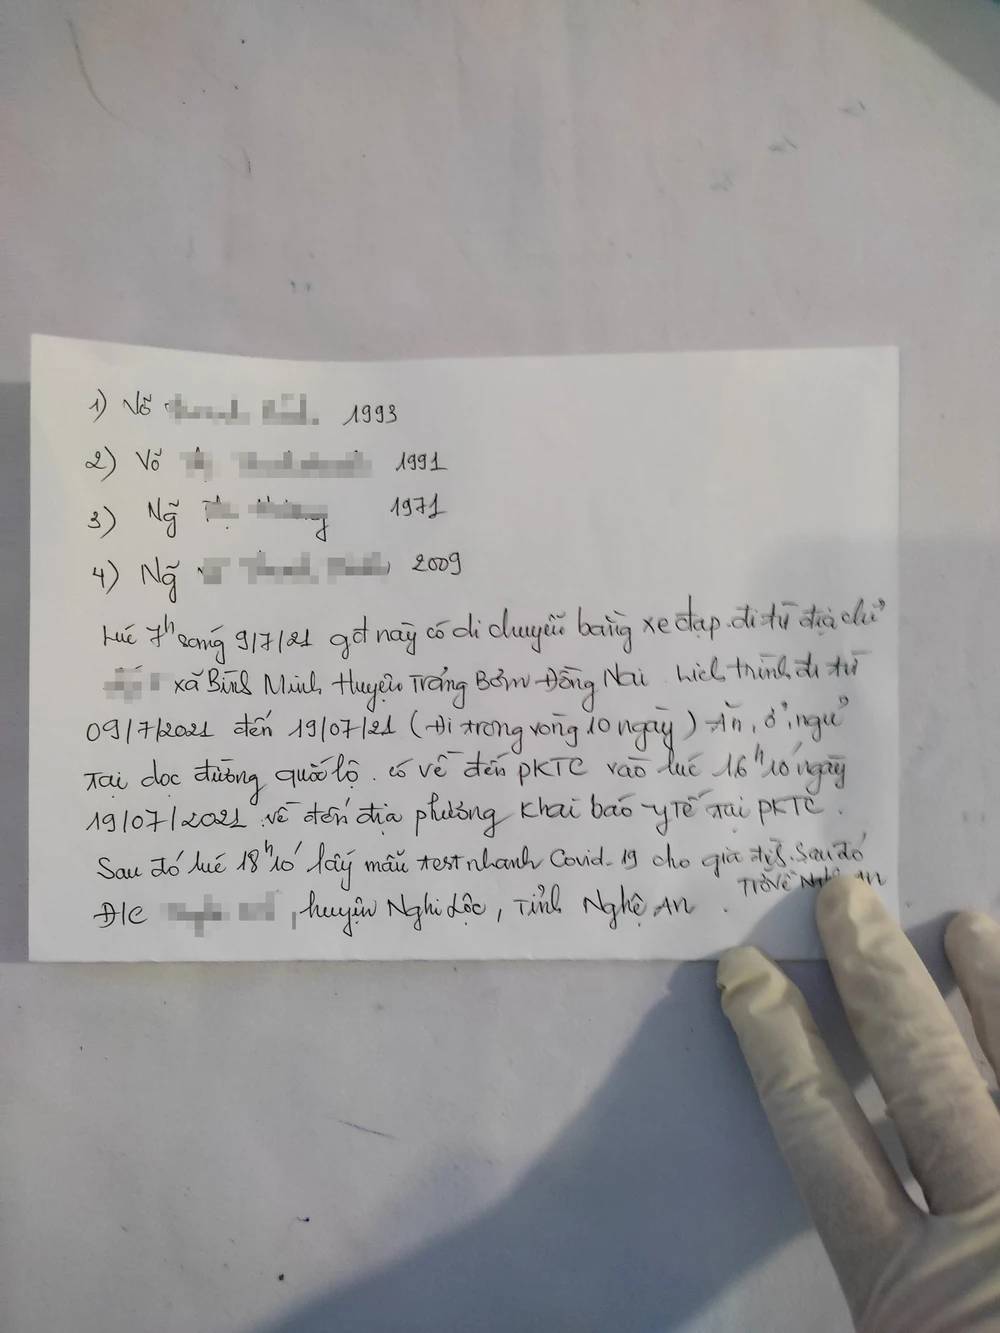 1) Võ 1993
2) Võ 1991
3) Ng̃ 1971
4) Ng̃ 2009
Lúc 7h sáng 9/7/21 gđ này có di chuyển bằng xe đạp. đi từ địa chỉ
xã Bình Minh Huyện Trảng Bơm Đồng Nai. Lịch trình đi từ
09/7/2021 đến 19/07/21 (Đi trong vòng 10 ngày) Ăn, ở, ngủ
tại dọc đường quốc lộ. có về đến PKTC vào lúc 16h10' ngày
19/07/2021. về đến địa phương khai báo y tế tại PKTC.
Sau đó lúc 18h10' lấy mẫu test nhanh Covid-19 cho gia đình. Sau đó
Trở về Nghệ An
Đ/C , huyện Nghi Lộc, Tỉnh Nghệ An.